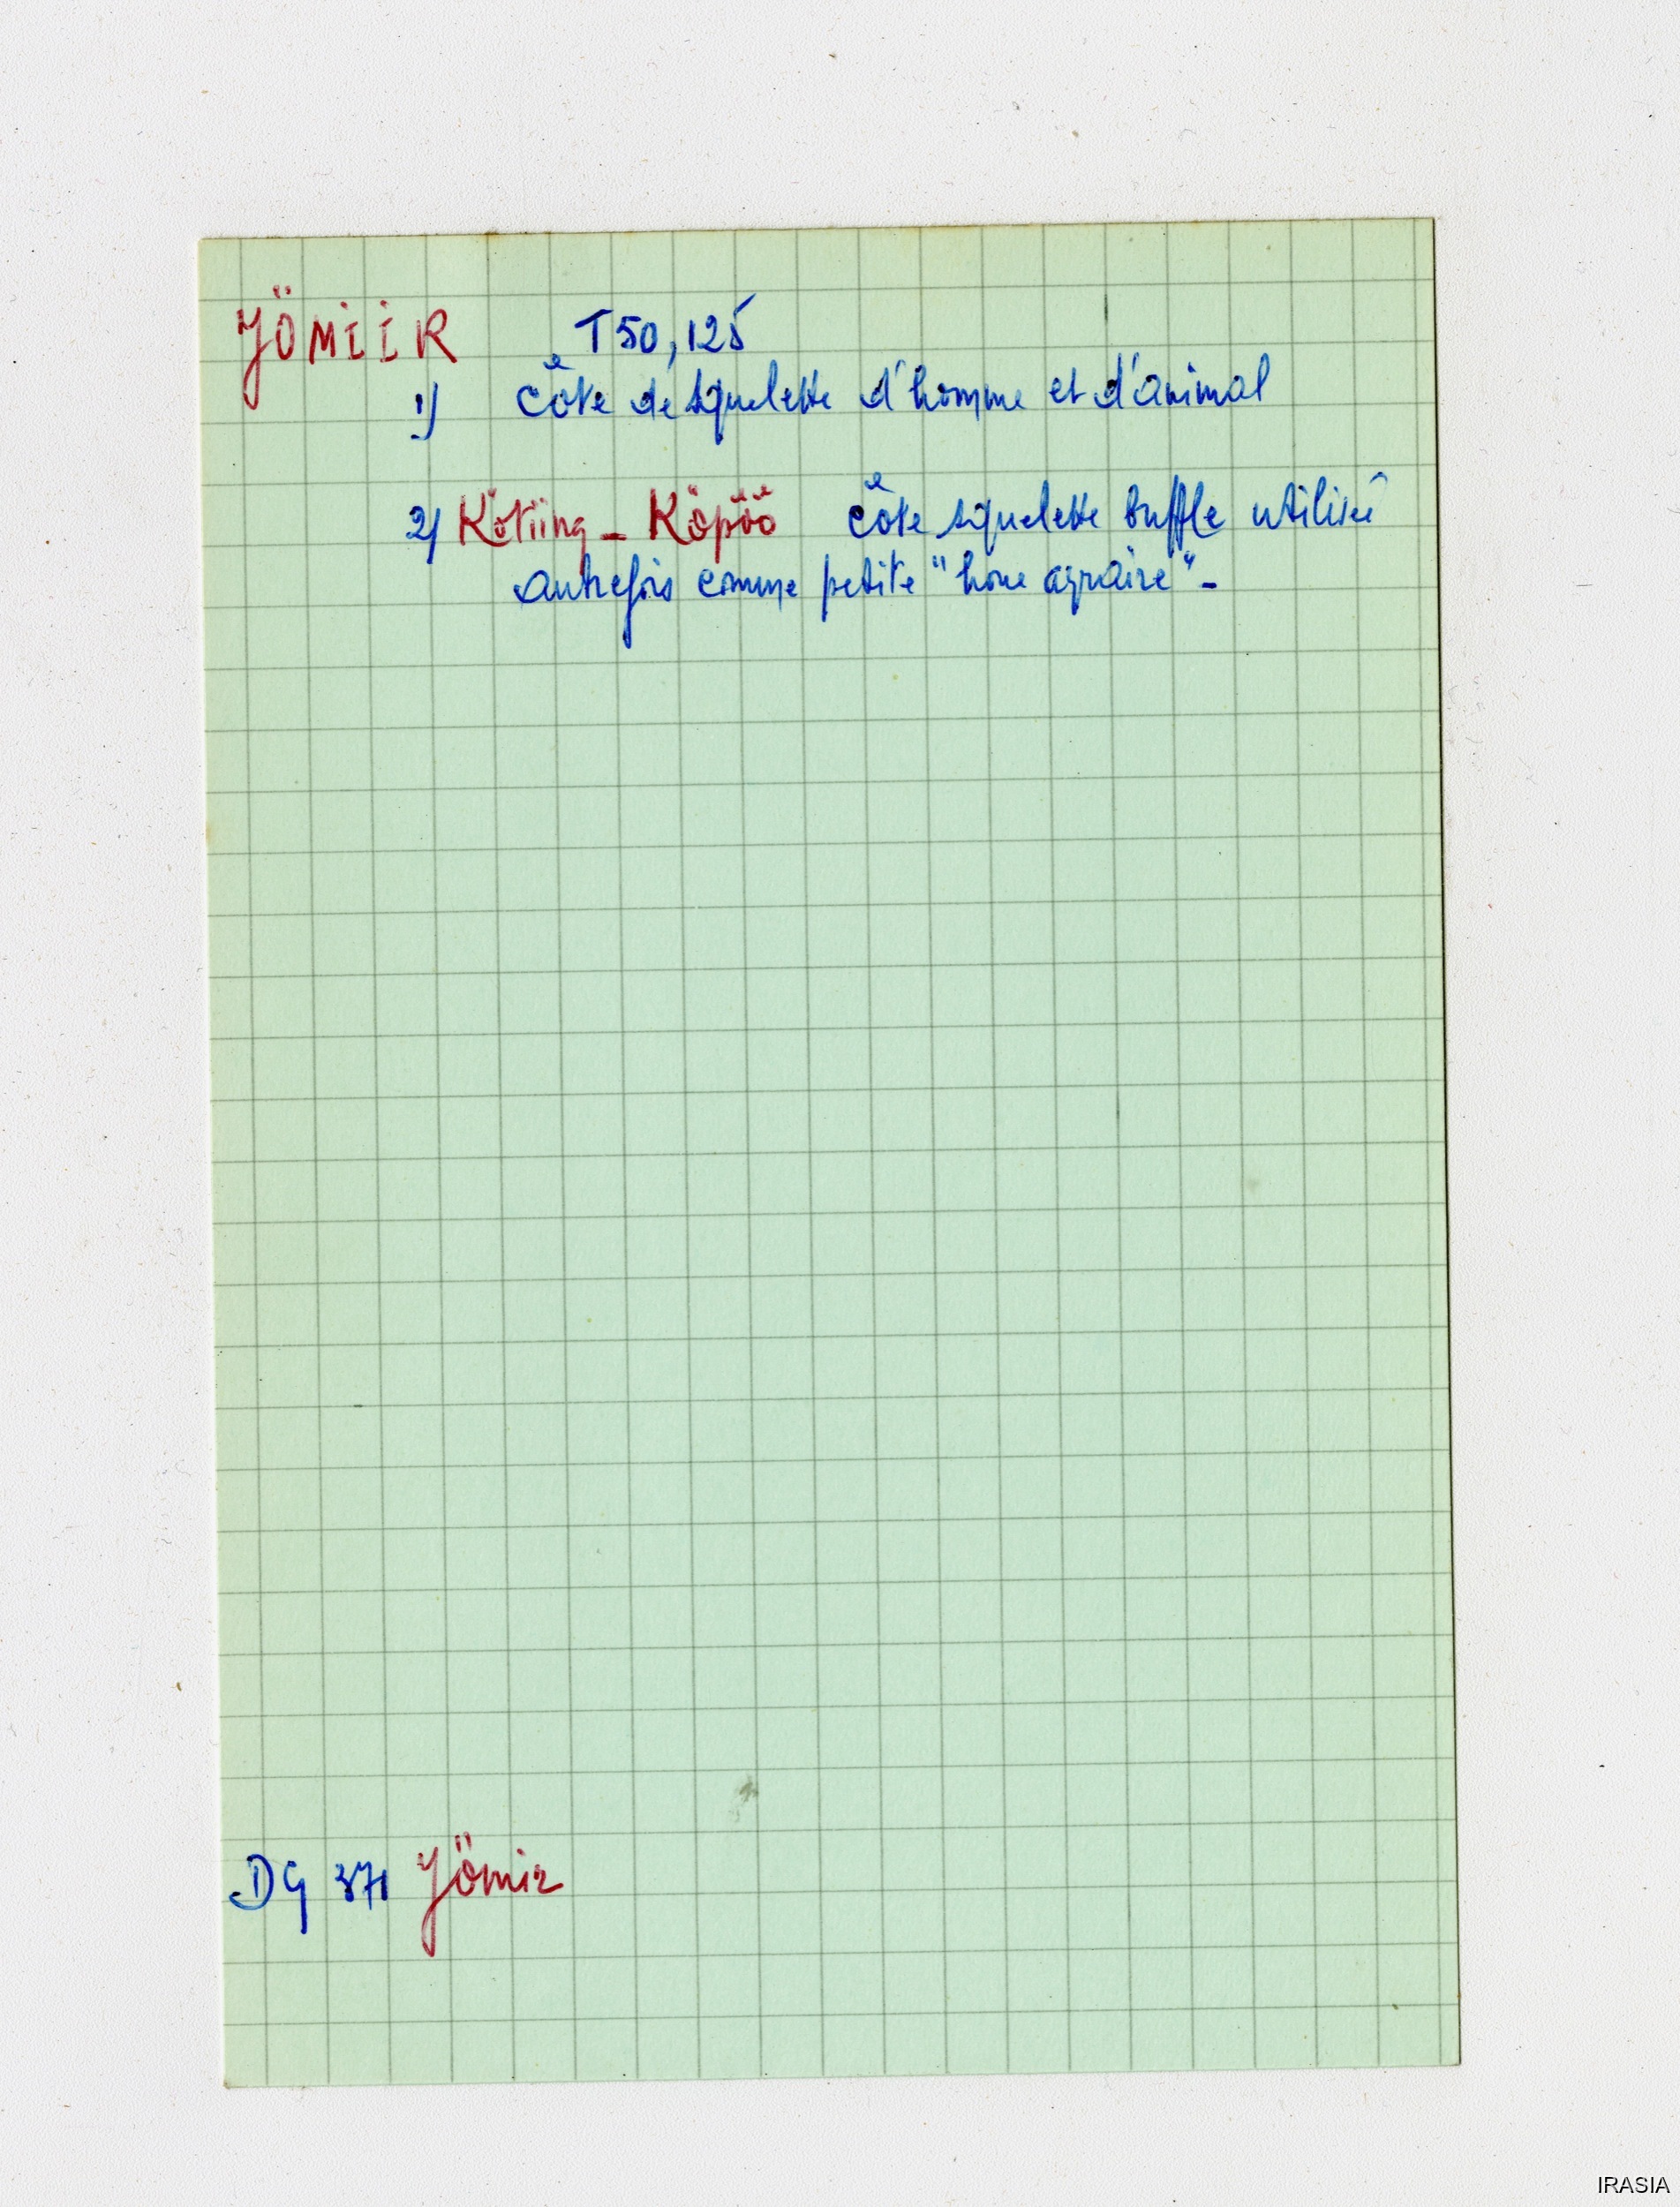 YÖMIIR T50,125
1) côte de squelette d'homme et d'animal
2) Kötiing - Köpöö côte squelette buffle utilisée
autrefois comme petite "houe agraire" -
DG 371 Yömir
IRASIA